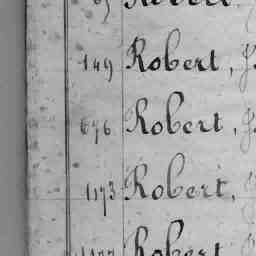 149 Robert, J
676 Robert, J
1173 Robert,
Robert